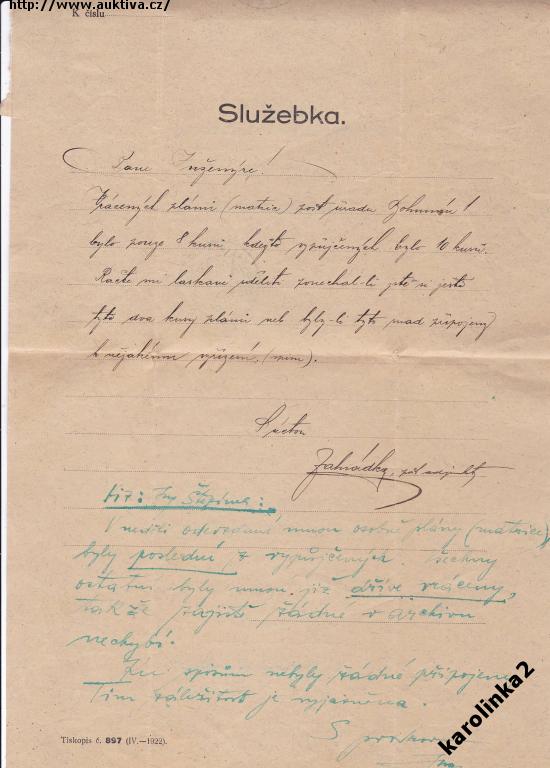 http://www.auktiva.cz/
K číslu
Služebka.
Pane Inženýre!
Vrácených plánů (matric) pošt. úřadu Bohumín 1
bylo pouze 8 kusů kdežto vypůjčených bylo 10 kusů.
Račte mi laskavě sděliti ponechal-li jste si ještě
tyto dva kusy plánů neb byly-li tyto snad připojeny
k nějakému vyřízení. (spisu).
S úctou
Zahrádka,
Inž. Štěpánek:
V neděli odevzdané mnou osobně plány (matrice)
byly poslední z vypůjčených. Všechny
ostatní byly mnou již dříve vráceny,
takže zajisté žádné v archivu
nechybí.
Ku spisům nebyly žádné připojeny
Tím záležitost je vyjasněna.
S
Tiskopis č. 897 (IV.—1922).
karolinka2